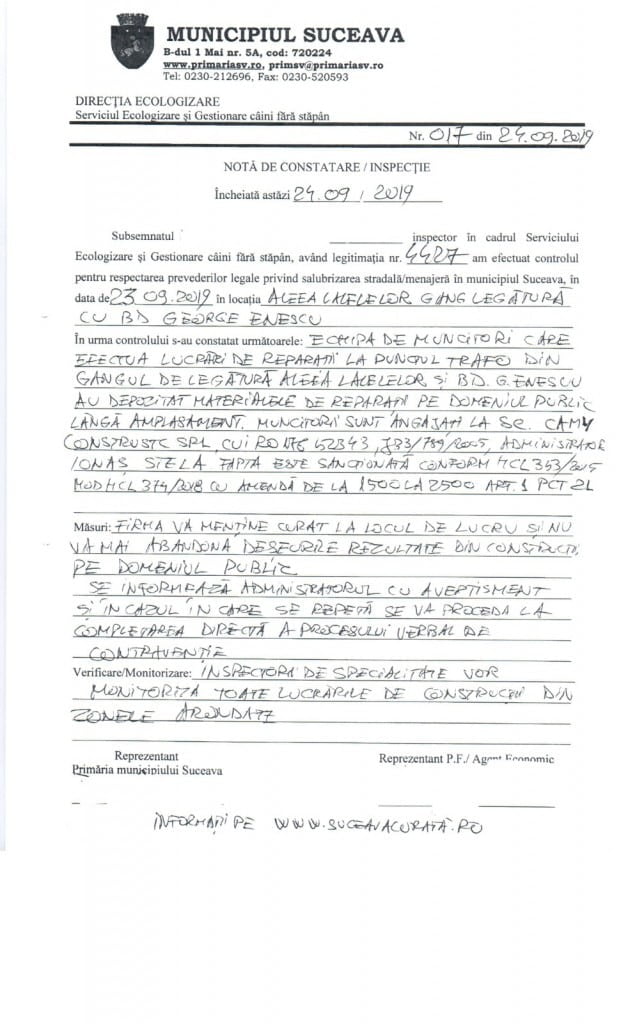 MUNICIPIUL SUCEAVA
B-dul 1 Mai nr. 5A, cod: 720224
www.primariasv.ro, primsv@primariasv.ro
Tel: 0230-212696, Fax: 0230-520593
DIRECŢIA ECOLOGIZARE
Serviciul Ecologizare şi Gestionare câini fără stăpân
Nr. 017 din 24.09.2019
NOTĂ DE CONSTATARE / INSPECŢIE
Încheiată astăzi 24.09 / 2019
Subsemnatul inspector în cadrul Serviciului
Ecologizare şi Gestionare câini fără stăpân, având legitimaţia nr. 4427 am efectuat controlul
pentru respectarea prevederilor legale privind salubrizarea stradală/menajeră în municipiul Suceava, în
data de 23 09.2019 în locaţia ALEEA LALELELOR GANG LEGĂTURĂ
CU BD GEORGE ENESCU
În urma controlului s-au constatat următoarele: ECHIPA DE MUNCITORI CARE
EFECTUA LUCRĂRI DE REPARAŢII LA PUNCTUL TRAFO DIN
GANGUL DE LEGĂTURĂ ALEEA LALELELOR ŞI BD. G. ENESCU
AU DEPOZITAT MATERIALELE DE REPARAŢII PE DOMENIUL PUBLIC
LÂNGĂ AMPLASAMENT. MUNCITORII SUNT ANGAJAŢI LA SC. CAMY
CONSTRUSTC SRL, CUI RO 176 52343, J33/789/2005, ADMINISTRATOR
IONAŞ STELA FAPTA ESTE SANCŢIONATĂ CONFORM HCL 353/2015
MOD HCL 374/2018 CU AMENDĂ DE LA 1500 LA 2500 ART. 1 PCT 2L
Măsuri: FIRMA VA MENŢINE CURAT LA LOCUL DE LUCRU ŞI NU
VA MAI ABANDONA DEŞEURILE REZULTATE DIN CONSTRUCŢII
PE DOMENIUL PUBLIC
SE INFORMEAZĂ ADMINISTRATORUL CU AVERTISMENT
ŞI ÎN CAZUL ÎN CARE SE REPETĂ SE VA PROCEDA LA
COMPLETAREA DIRECTĂ A PROCESULUI VERBAL DE
CONTRAVENŢIE
Verificare/Monitorizare: INSPECTORII DE SPECIALITATE VOR
MONITORIZA TOATE LUCRĂRILE DE CONSTRUCŢII DIN
ZONELE ARONDATE
Reprezentant Reprezentant P.F./ Agent Economic
Primăria municipiului Suceava
INFORMAŢII PE WWW.SUCEAVACURATĂ.RO